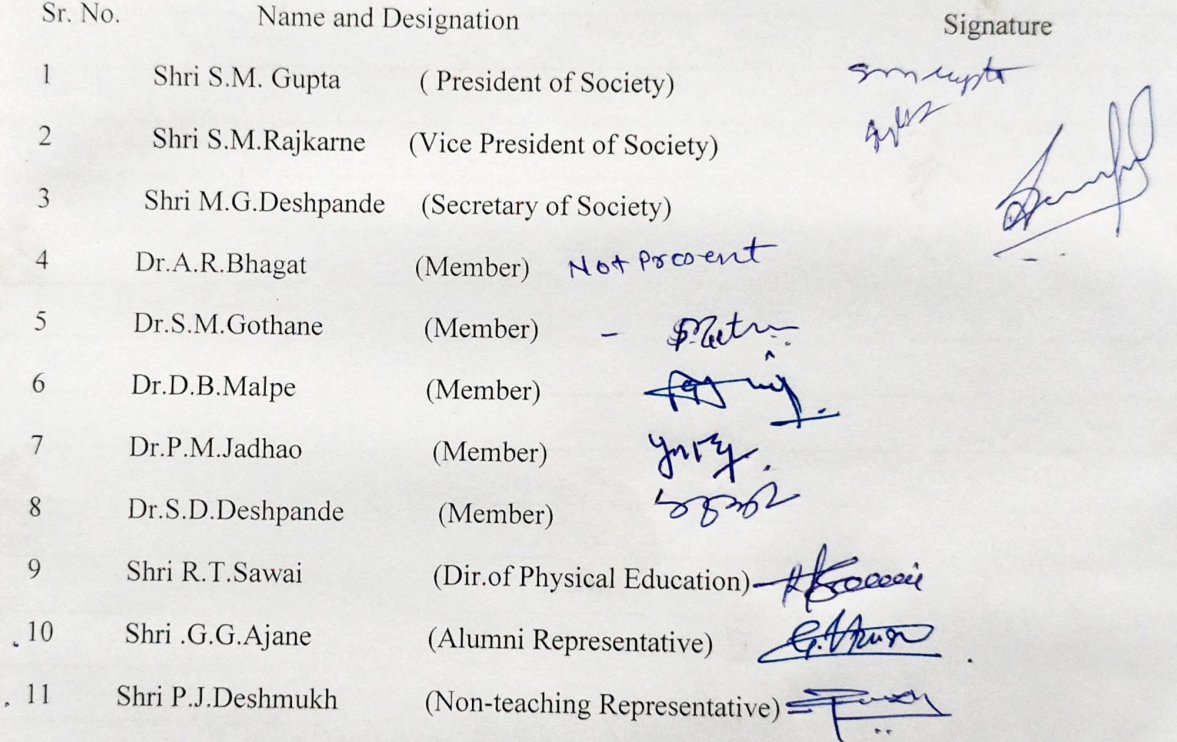 Sr. No. Name and Designation Signature
1 Shri S.M. Gupta ( President of Society) smgupta
2 Shri S.M.Rajkarne (Vice President of Society)
3 Shri M.G.Deshpande (Secretary of Society)
4 Dr.A.R.Bhagat (Member) Not Present
5 Dr.S.M.Gothane (Member) -
6 Dr.D.B.Malpe (Member)
7 Dr.P.M.Jadhao (Member)
8 Dr.S.D.Deshpande (Member)
9 Shri R.T.Sawai (Dir.of Physical Education)
10 Shri .G.G.Ajane (Alumni Representative)
11 Shri P.J.Deshmukh (Non-teaching Representative)